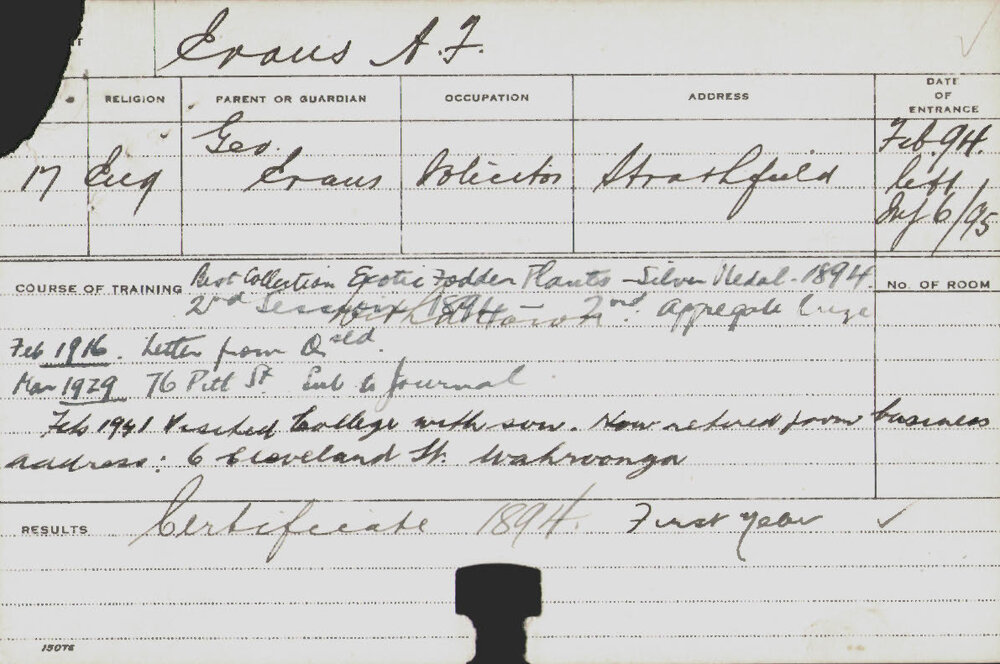 Evans A.F.
RELIGION PARENT OR GUARDIAN OCCUPATION ADDRESS DATE OF ENTRANCE
Geo. Feb. 94.
17 Eng Evans Solicitor Strathfield left
6/95
COURSE OF TRAINING Best Collection Exotic Fodder Plants - Silver Medal - 1894. No. OF ROOM
2nd Session 1894 - 2nd. Aggregate Prize
Feb 1916. Letter from Qsld.
Mar 1929 76 Pitt St. Sub to Journal
Feb 1941 Visited College with son. Now retired from business
address: 6 Cleveland St. Wahroonga
RESULTS Certificate 1894. First Year ✓
15076